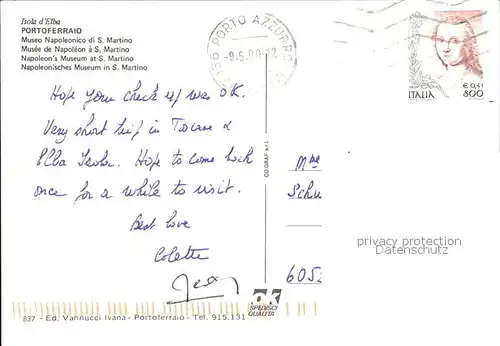 Isola d'Elba
PORTOFERRAIO
Museo Napoleonico di S. Martino
Musée de Napoléon à S. Martino
Napoleon's Museum at S. Martino
Napoleonisches Museum in S. Martino
PORTO AZZURRO
ITALIA
€ 0,41
800
Hope your check up was OK.
Very short trip in Toscane &
Elba Isola. Hope to come back
once for a while to visit.
Best love
Colette
Jean
CO.GRAF s.r.l.
Mme
Schu
605
privacy protection
Datenschutz
ok
SPEDISCI
QUALITA'
837 - Ed. Vannucci Ivana - Portoferraio - Tel. 915.131